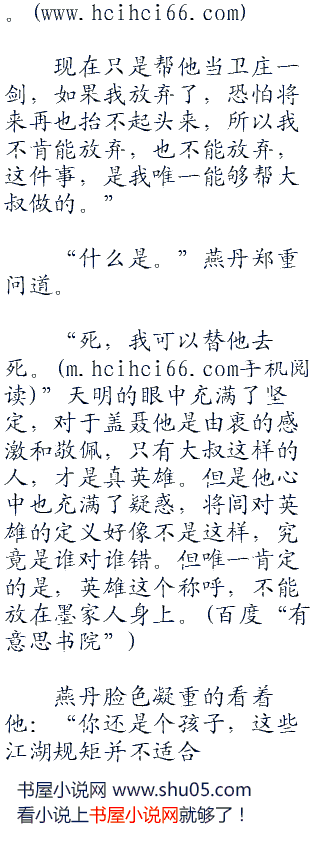 。(www.hcihci66.com)
现在只是帮他当卫庄一
剑，如果我放弃了，恐怕将
来再也抬不起头来，所以我
不肯能放弃，也不能放弃，
这件事，是我唯一能够帮大
叔做的。”
“什么是。”燕丹郑重
问道。
“死，我可以替他去
死。(m.hcihci66.com手机阅
读)”天明的眼中充满了坚
定，对于盖聂他是由衷的感
激和敬佩，只有大叔这样的
人，才是真英雄。但是他心
中也充满了疑惑，将闾对英
雄的定义好像不是这样，究
竟是谁对谁错。但唯一肯定
的是，英雄这个称呼，不能
放在墨家人身上。(百度“有
意思书院”)
燕丹脸色凝重的看着
他：“你还是个孩子，这些
江湖规矩并不适合
书屋小说网 www.shu05.com
看小说上书屋小说网就够了！